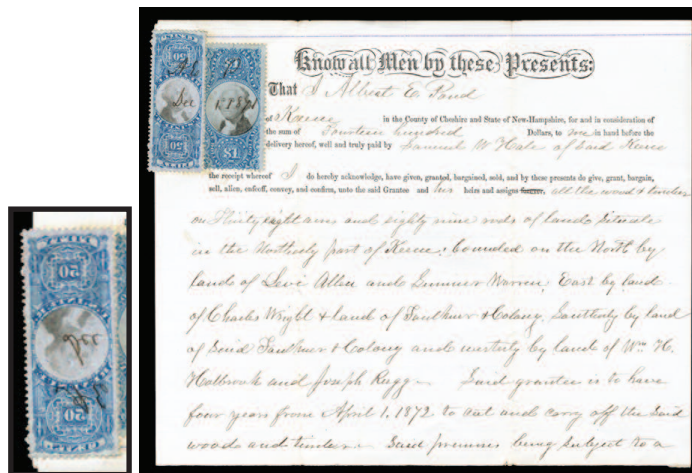 Know all Men by these Presents:
That I Albert E. Pond
of Keene in the County of Cheshire and State of New-Hampshire, for and in consideration of
the sum of Fourteen hundred Dollars, to me in hand before the
delivery hereof, well and truly paid by Samuel W. Hale of Said Keene
the receipt whereof I do hereby acknowledge, have given, granted, bargained, sold, and by these presents do give, grant, bargain,
sell, alien, enfeoff, convey, and confirm, unto the said Grantee and his heirs and assigns forever, all the wood & timber
on Thirty eight acres and eighty nine rods of land situate
in the Northerly part of Keene, bounded on the North by
lands of Levi Allen and Sumner Warren, East by land
of Charles Wright & land of Faulkner & Colony, Southerly by land
of Said Faulkner & Colony and westerly by land of Wm H.
Holbrook and Joseph Rugg – Said grantee is to have
four years from April 1, 1872 to cut and carry off the said
wood and timber – Said premises being subject to a
50
Dec
50
$1
20
Dec
20